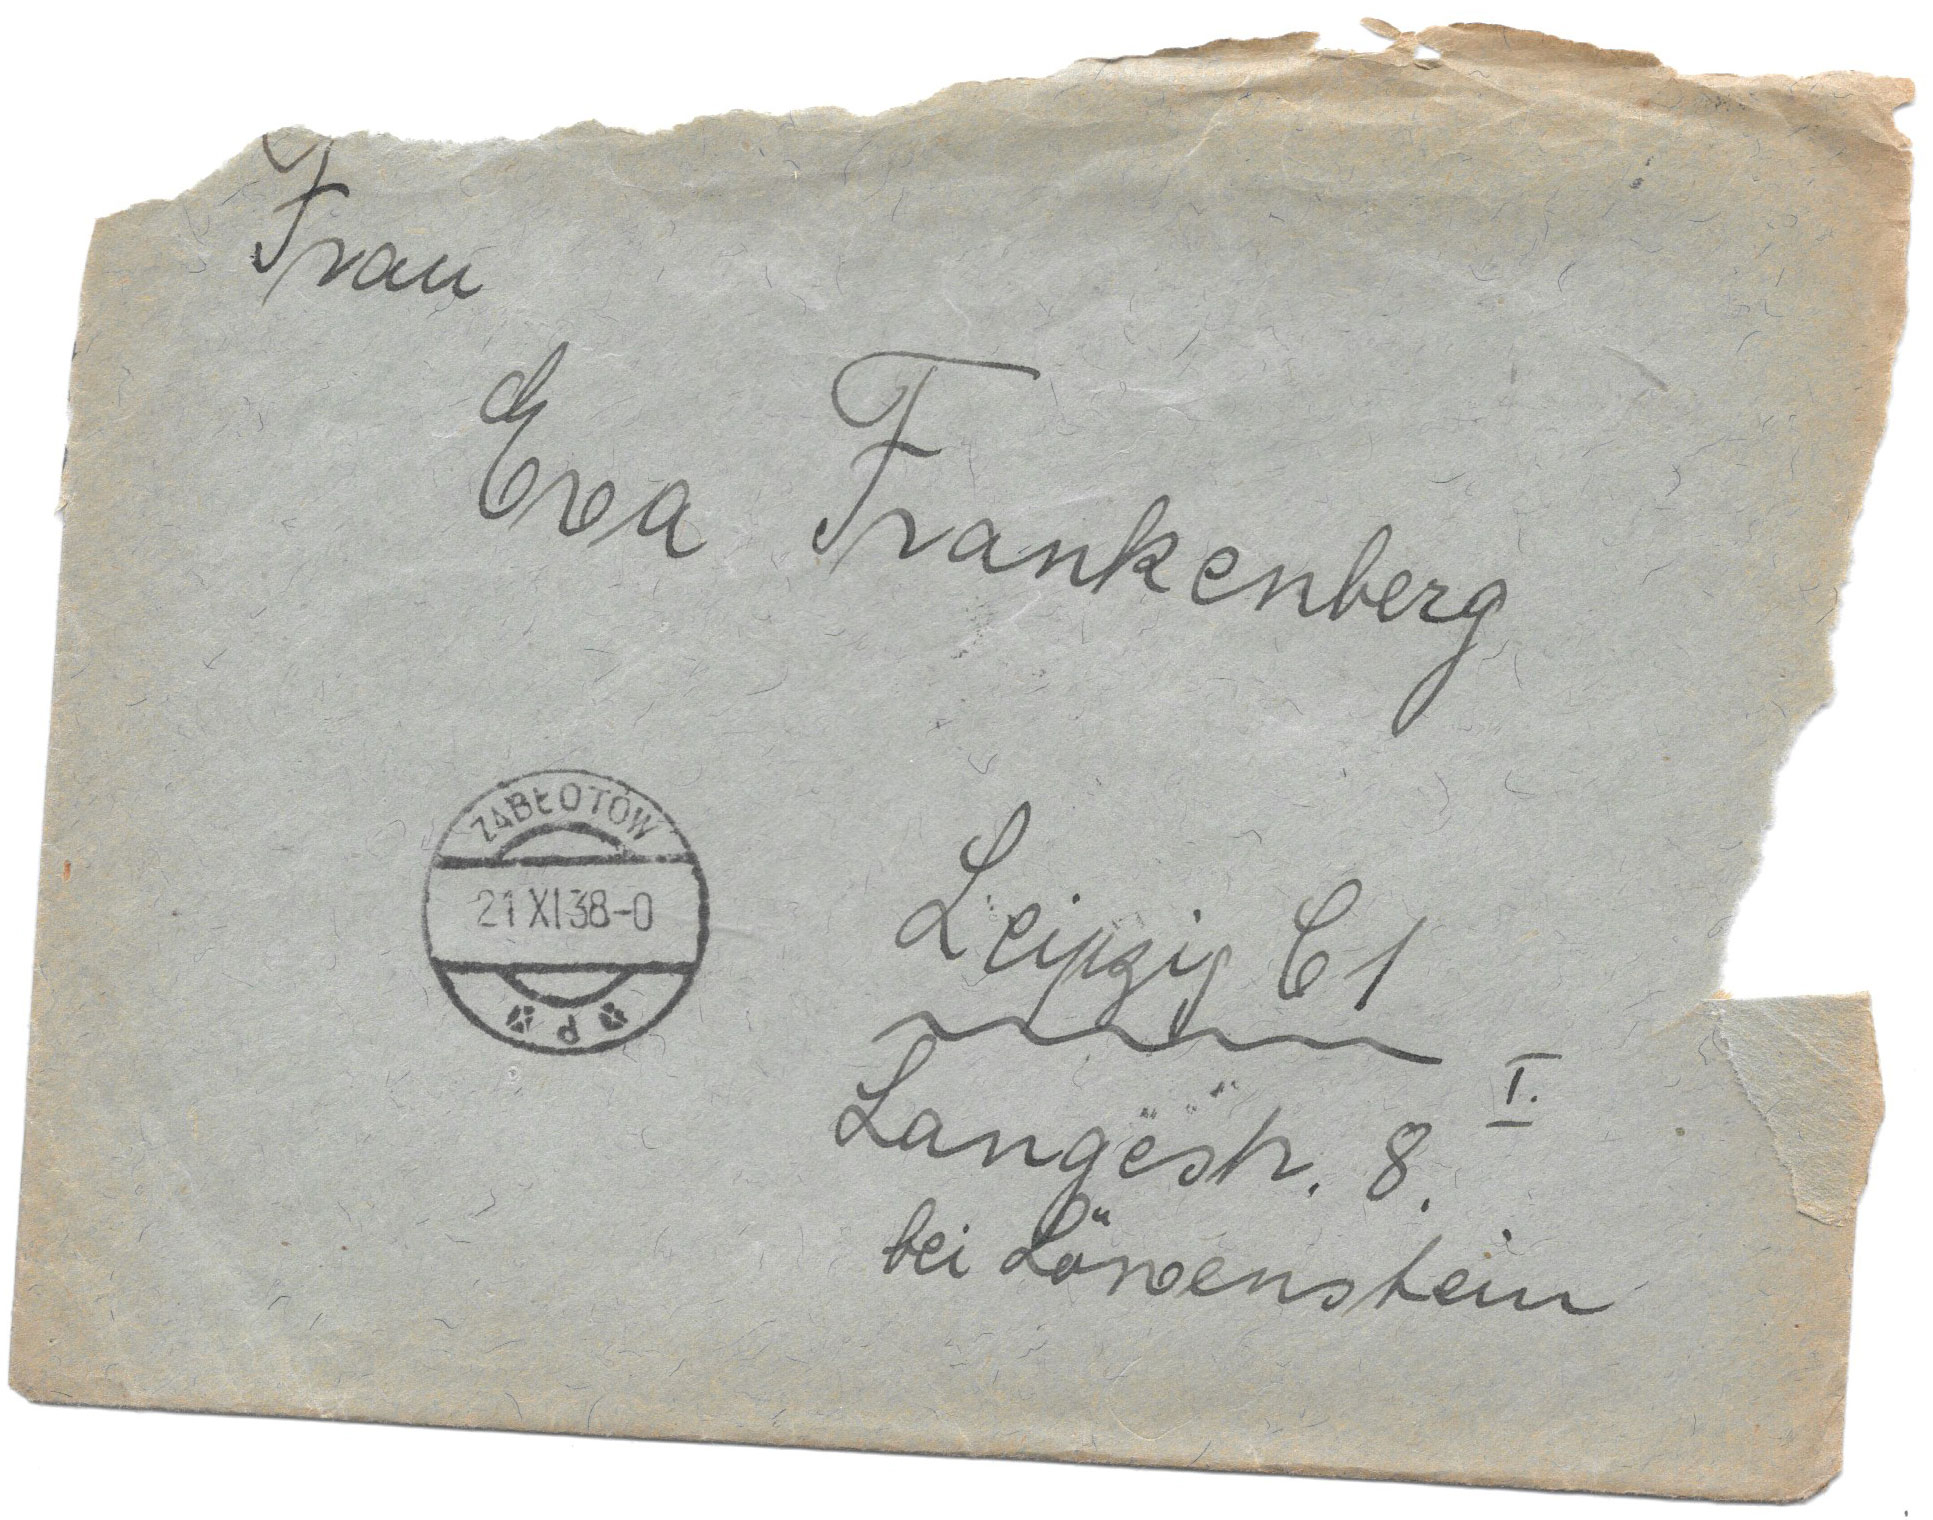 Frau
Eva Frankenberg
ZABŁOTÓW
21 XI 38-0
* P *
Leipzig C1
Langestr. 8. I.
bei Löwenstein